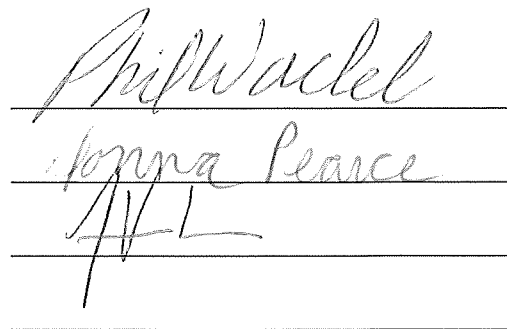 Phil Wadel
Donna Pearce